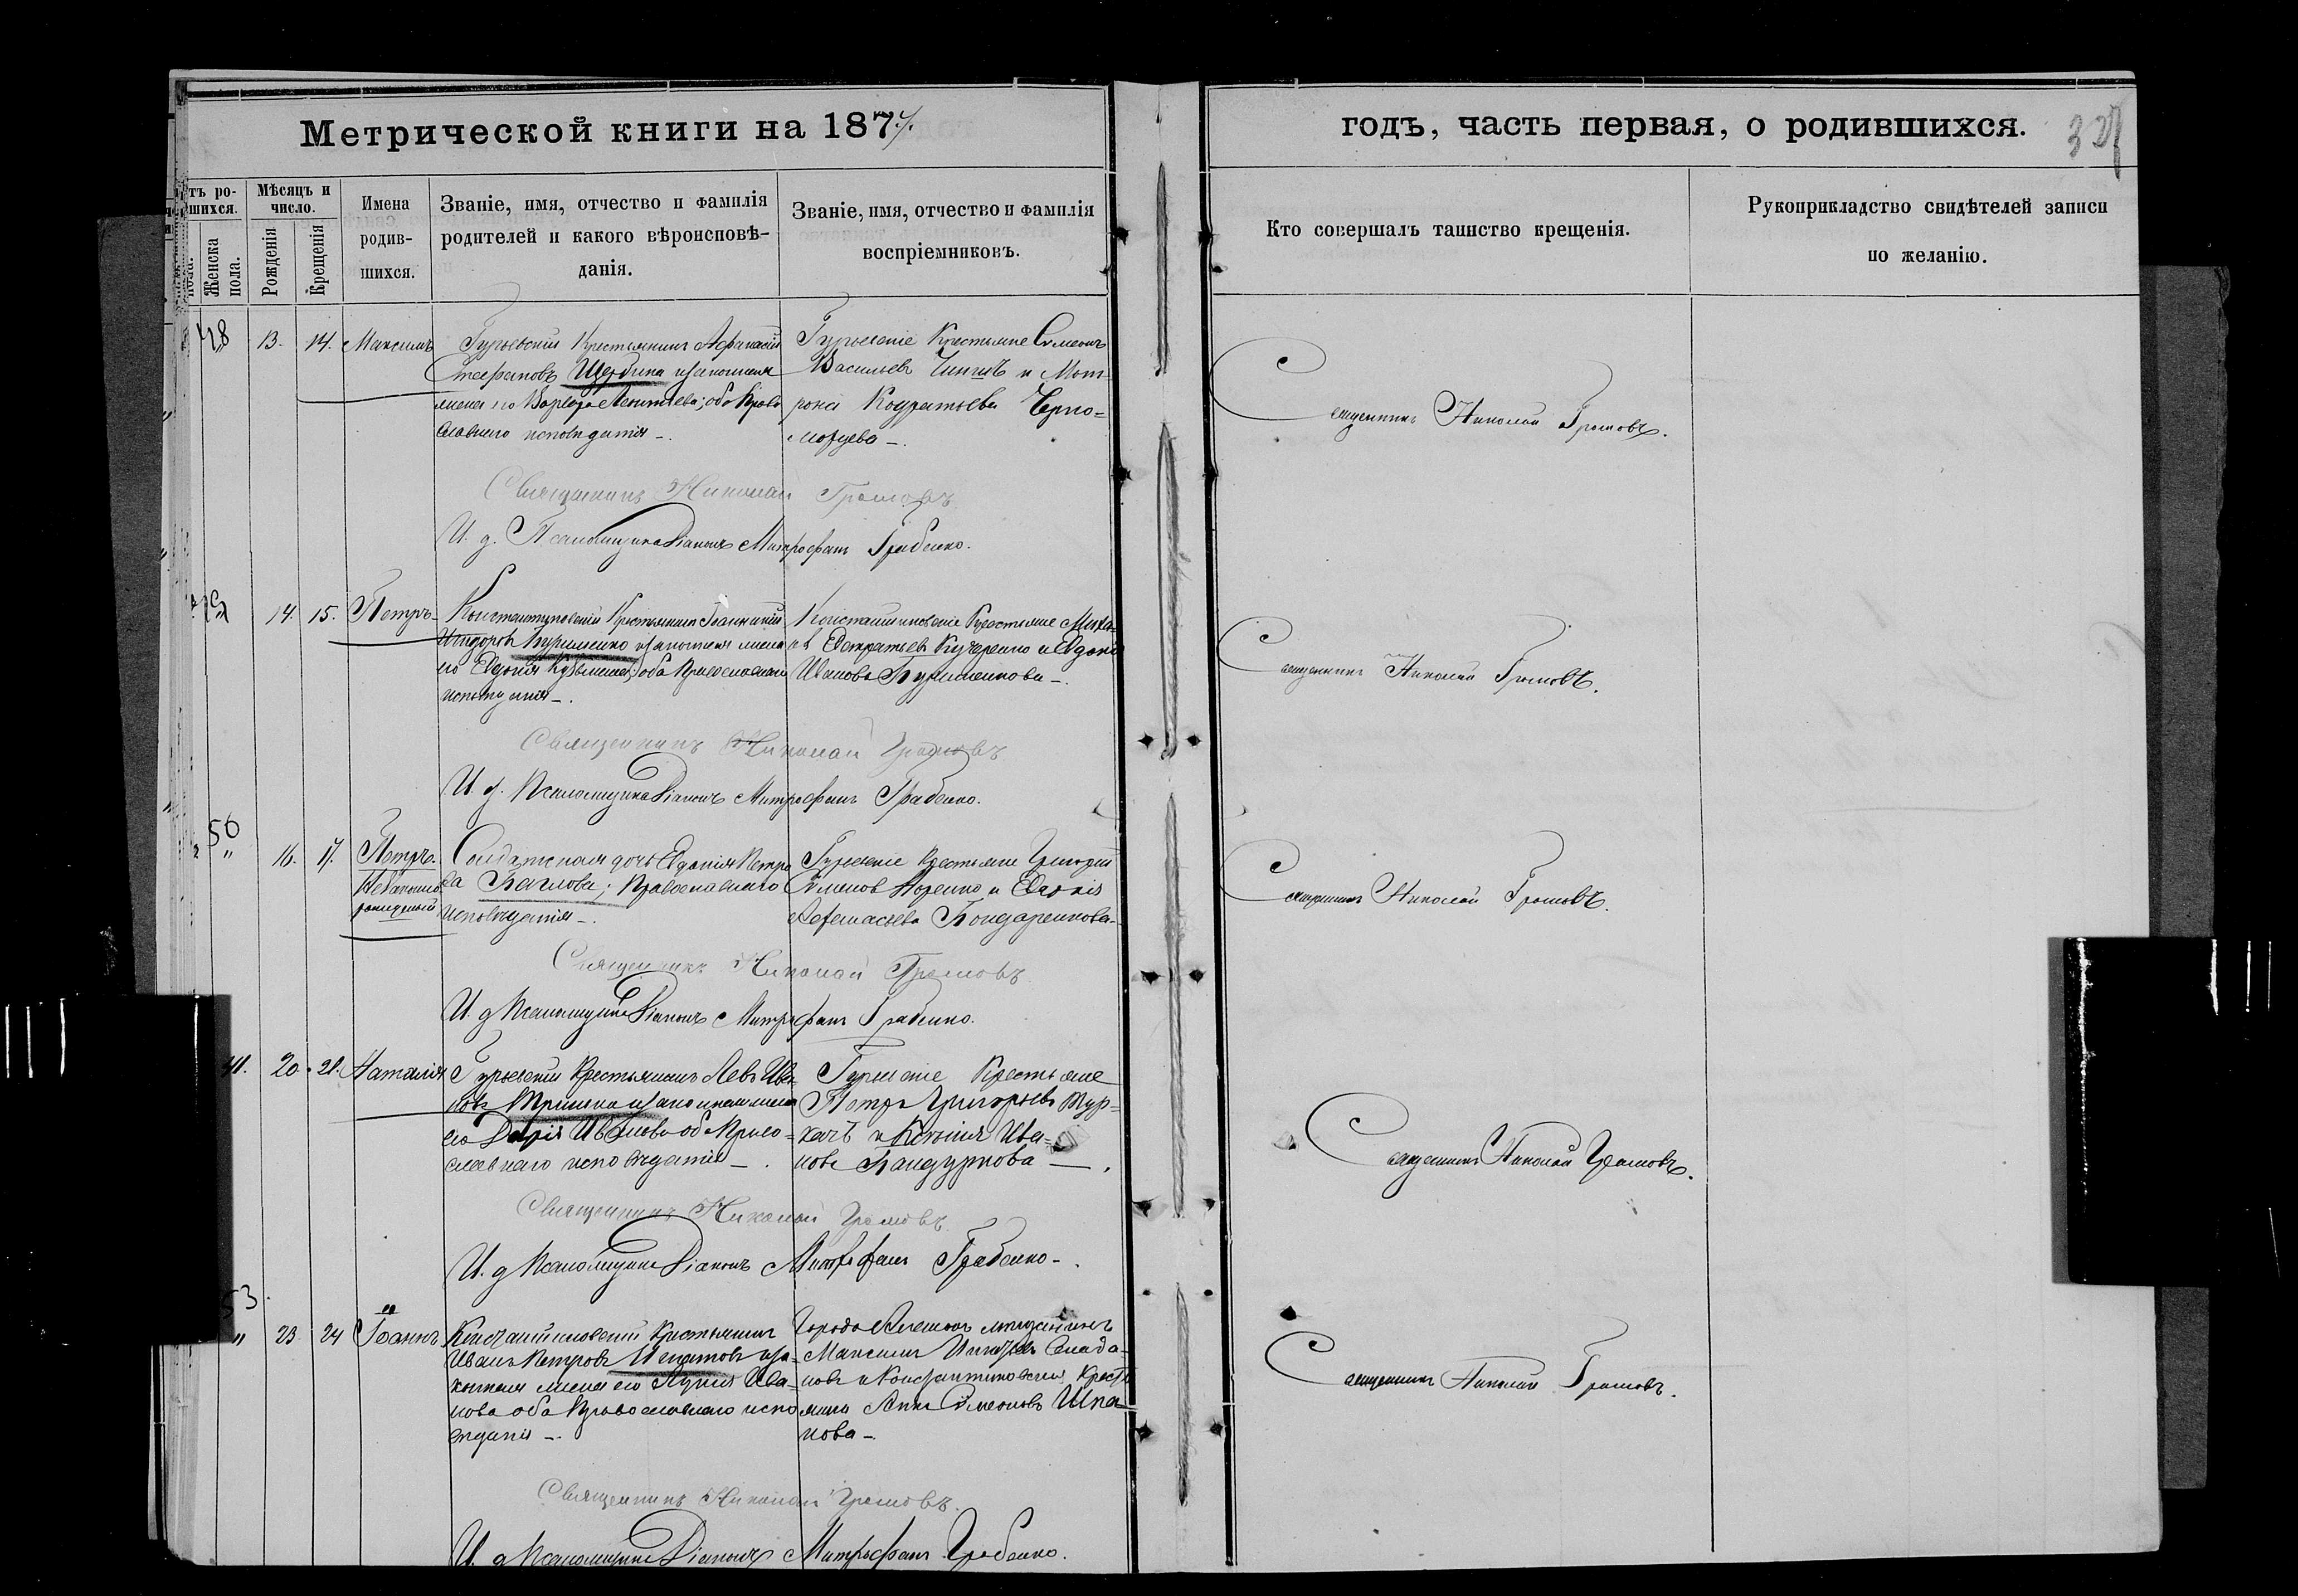 Метрической книги на 1877.
годъ, часть первая, о родившихся.
327
тъ ро-
шихся.
Женска
пола.
Мѣсяцъ и
число.
Рожденія
Крещенія
Имена
родив-
шихся.
Званіе, имя, отчество и фамилія
родителей и какого вѣроисповѣ-
данія.
Званіе, имя, отчество и фамилія
воспріемниковъ.
Кто совершалъ таинство крещенія.
Рукоприкладство свидѣтелей записи
по желанію.
48
13. 14. Максимъ
Гурьевскій Крестьянинъ Афанасій
Стефановъ Щербина и законная
жена его Варвара Леонтіева; оба Право
славнаго исповѣданія -.
Гурьевскіе Крестьяне Симеонъ
Васильевъ и Мот
рона Кондратьева Черно=
морцева -.
Священникъ Николай Громовъ.
Священникъ Николай Громовъ
И. д. Псаломщика Діаконъ Митрофанъ Грабенко.
14. 15. Петръ
Константиновскій Крестьянинъ
и законная жена
его Евдокія оба Православнаго
исповѣданія -.
Константиновскіе Крестьяне Миха-
Евстратьевъ Кучеренко и Евдокія
Иванова -.
Священникъ Николай Громовъ.
Священникъ Николай Громовъ
И. д. Псаломщика Діаконъ Митрофанъ Грабенко.
50
" 16. 17. Петръ.
Незаконно
рожденный
Солдатская дочь Евдокія Петро
ва Православнаго
исповѣданія -.
Гурьевскіе Крестьяне Григорій
Симеоновъ и Евдокія
Афанасьева Бондаренкова -
Священникъ Николай Громовъ.
Священникъ Николай Громовъ
И. д. Псаломщика Діаконъ Митрофанъ Грабенко.
20. 21. Наталія
Гурьевскій Крестьянинъ Левъ Ива-
новъ и законная жена
его Дарія оба Право=
славнаго исповѣданія -.
Гурьевскіе Крестьяне
Петръ Григорьевъ Тур=
качъ и Ксенія Ива=
нова Бандуркова -.
Священникъ Николай Громовъ.
Священникъ Николай Громовъ
И. д. Псаломщика Діаконъ Митрофанъ Грабенко -.
53.
" 23 24 Іоаннъ
Константиновскій Крестьянинъ
Иванъ Петровъ Игнатовъ и за=
конная жена его Ива-
нова оба Православнаго испо
вѣданія -.
Города мѣщанинъ
Максимъ
новъ и Константиновская Кресть
янка Анна Симеонова
нова -.
Священникъ Николай Громовъ.
Священникъ Николай Громовъ.
И. д. Псаломщика Діаконъ Митрофанъ Грабенко.